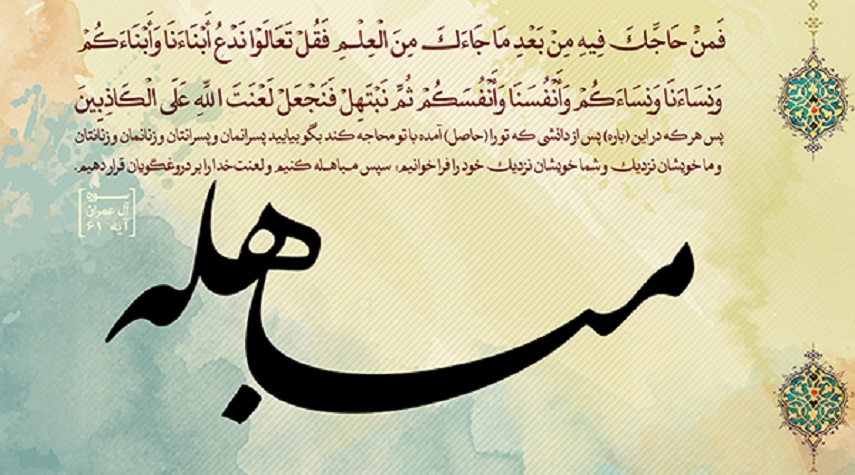 فَمَنْ حَاجَّكَ فِيهِ مِنْ بَعْدِ مَا جَاءَكَ مِنَ الْعِلْمِ فَقُلْ تَعَالَوْا نَدْعُ أَبْنَاءَنَا وَأَبْنَاءَكُمْ
وَنِسَاءَنَا وَنِسَاءَكُمْ وَأَنْفُسَنَا وَأَنْفُسَكُمْ ثُمَّ نَبْتَهِلْ فَنَجْعَلْ لَعْنَتَ اللَّهِ عَلَى الْكَاذِبِينَ
پس هر که در این (باره) پس از دانشی که تو را (حاصل) آمده با تو محاجه کند بگو بیایید پسرانمان و پسرانتان و زنانمان و زنانتان
و ما خویشان نزدیک و شما خویشان نزدیک خود را فرا خوانیم؛ سپس مباهله کنیم و لعنت خدا را بر دروغگویان قرار دهیم.
سوره
آل عمران
آیه ۶۱
مباهله